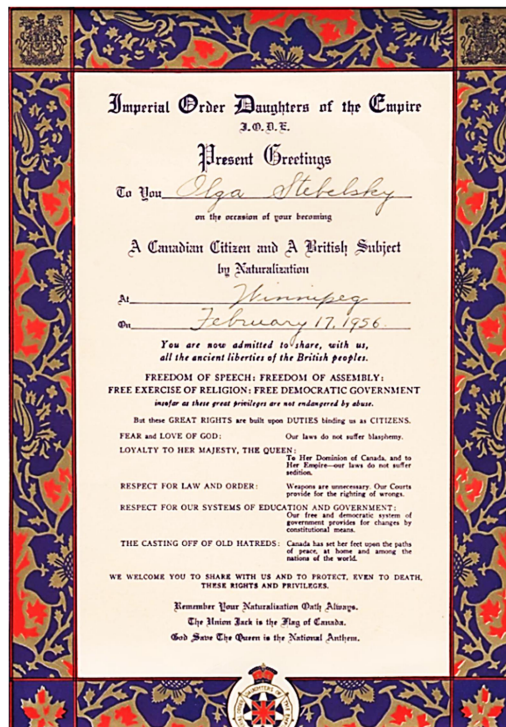 Imperial Order Daughters of the Empire
I.O.D.E.
Present Greetings
To You Olga Stebelsky
on the occasion of your becoming
A Canadian Citizen and A British Subject
by Naturalization
At Winnipeg
On February 17, 1956.
You are now admitted to share, with us,
all the ancient liberties of the British peoples.
FREEDOM OF SPEECH: FREEDOM OF ASSEMBLY:
FREE EXERCISE OF RELIGION: FREE DEMOCRATIC GOVERNMENT
insofar as these great privileges are not endangered by abuse.
But these GREAT RIGHTS are built upon DUTIES binding us as CITIZENS.
FEAR and LOVE OF GOD: Our laws do not suffer blasphemy.
LOYALTY TO HER MAJESTY, THE QUEEN:
To Her Dominion of Canada, and to
Her Empire—our laws do not suffer
sedition.
RESPECT FOR LAW AND ORDER: Weapons are unnecessary. Our Courts
provide for the righting of wrongs.
RESPECT FOR OUR SYSTEMS OF EDUCATION AND GOVERNMENT:
Our free and democratic system of
government provides for changes by
constitutional means.
THE CASTING OFF OF OLD HATREDS: Canada has set her feet upon the paths
of peace, at home and among the
nations of the world.
WE WELCOME YOU TO SHARE WITH US AND TO PROTECT, EVEN TO DEATH,
THESE RIGHTS AND PRIVILEGES.
Remember Your Naturalization Oath Always.
The Union Jack is the Flag of Canada.
God Save The Queen is the National Anthem.
DAUGHTERS OF THE